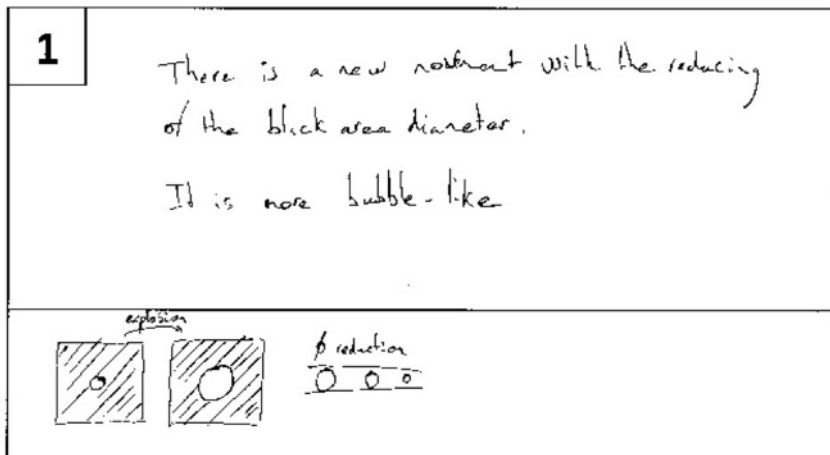 1
There is a new with the reducing
of the black area diameter.
It is more bubble-like
explosion
ϕ reduction